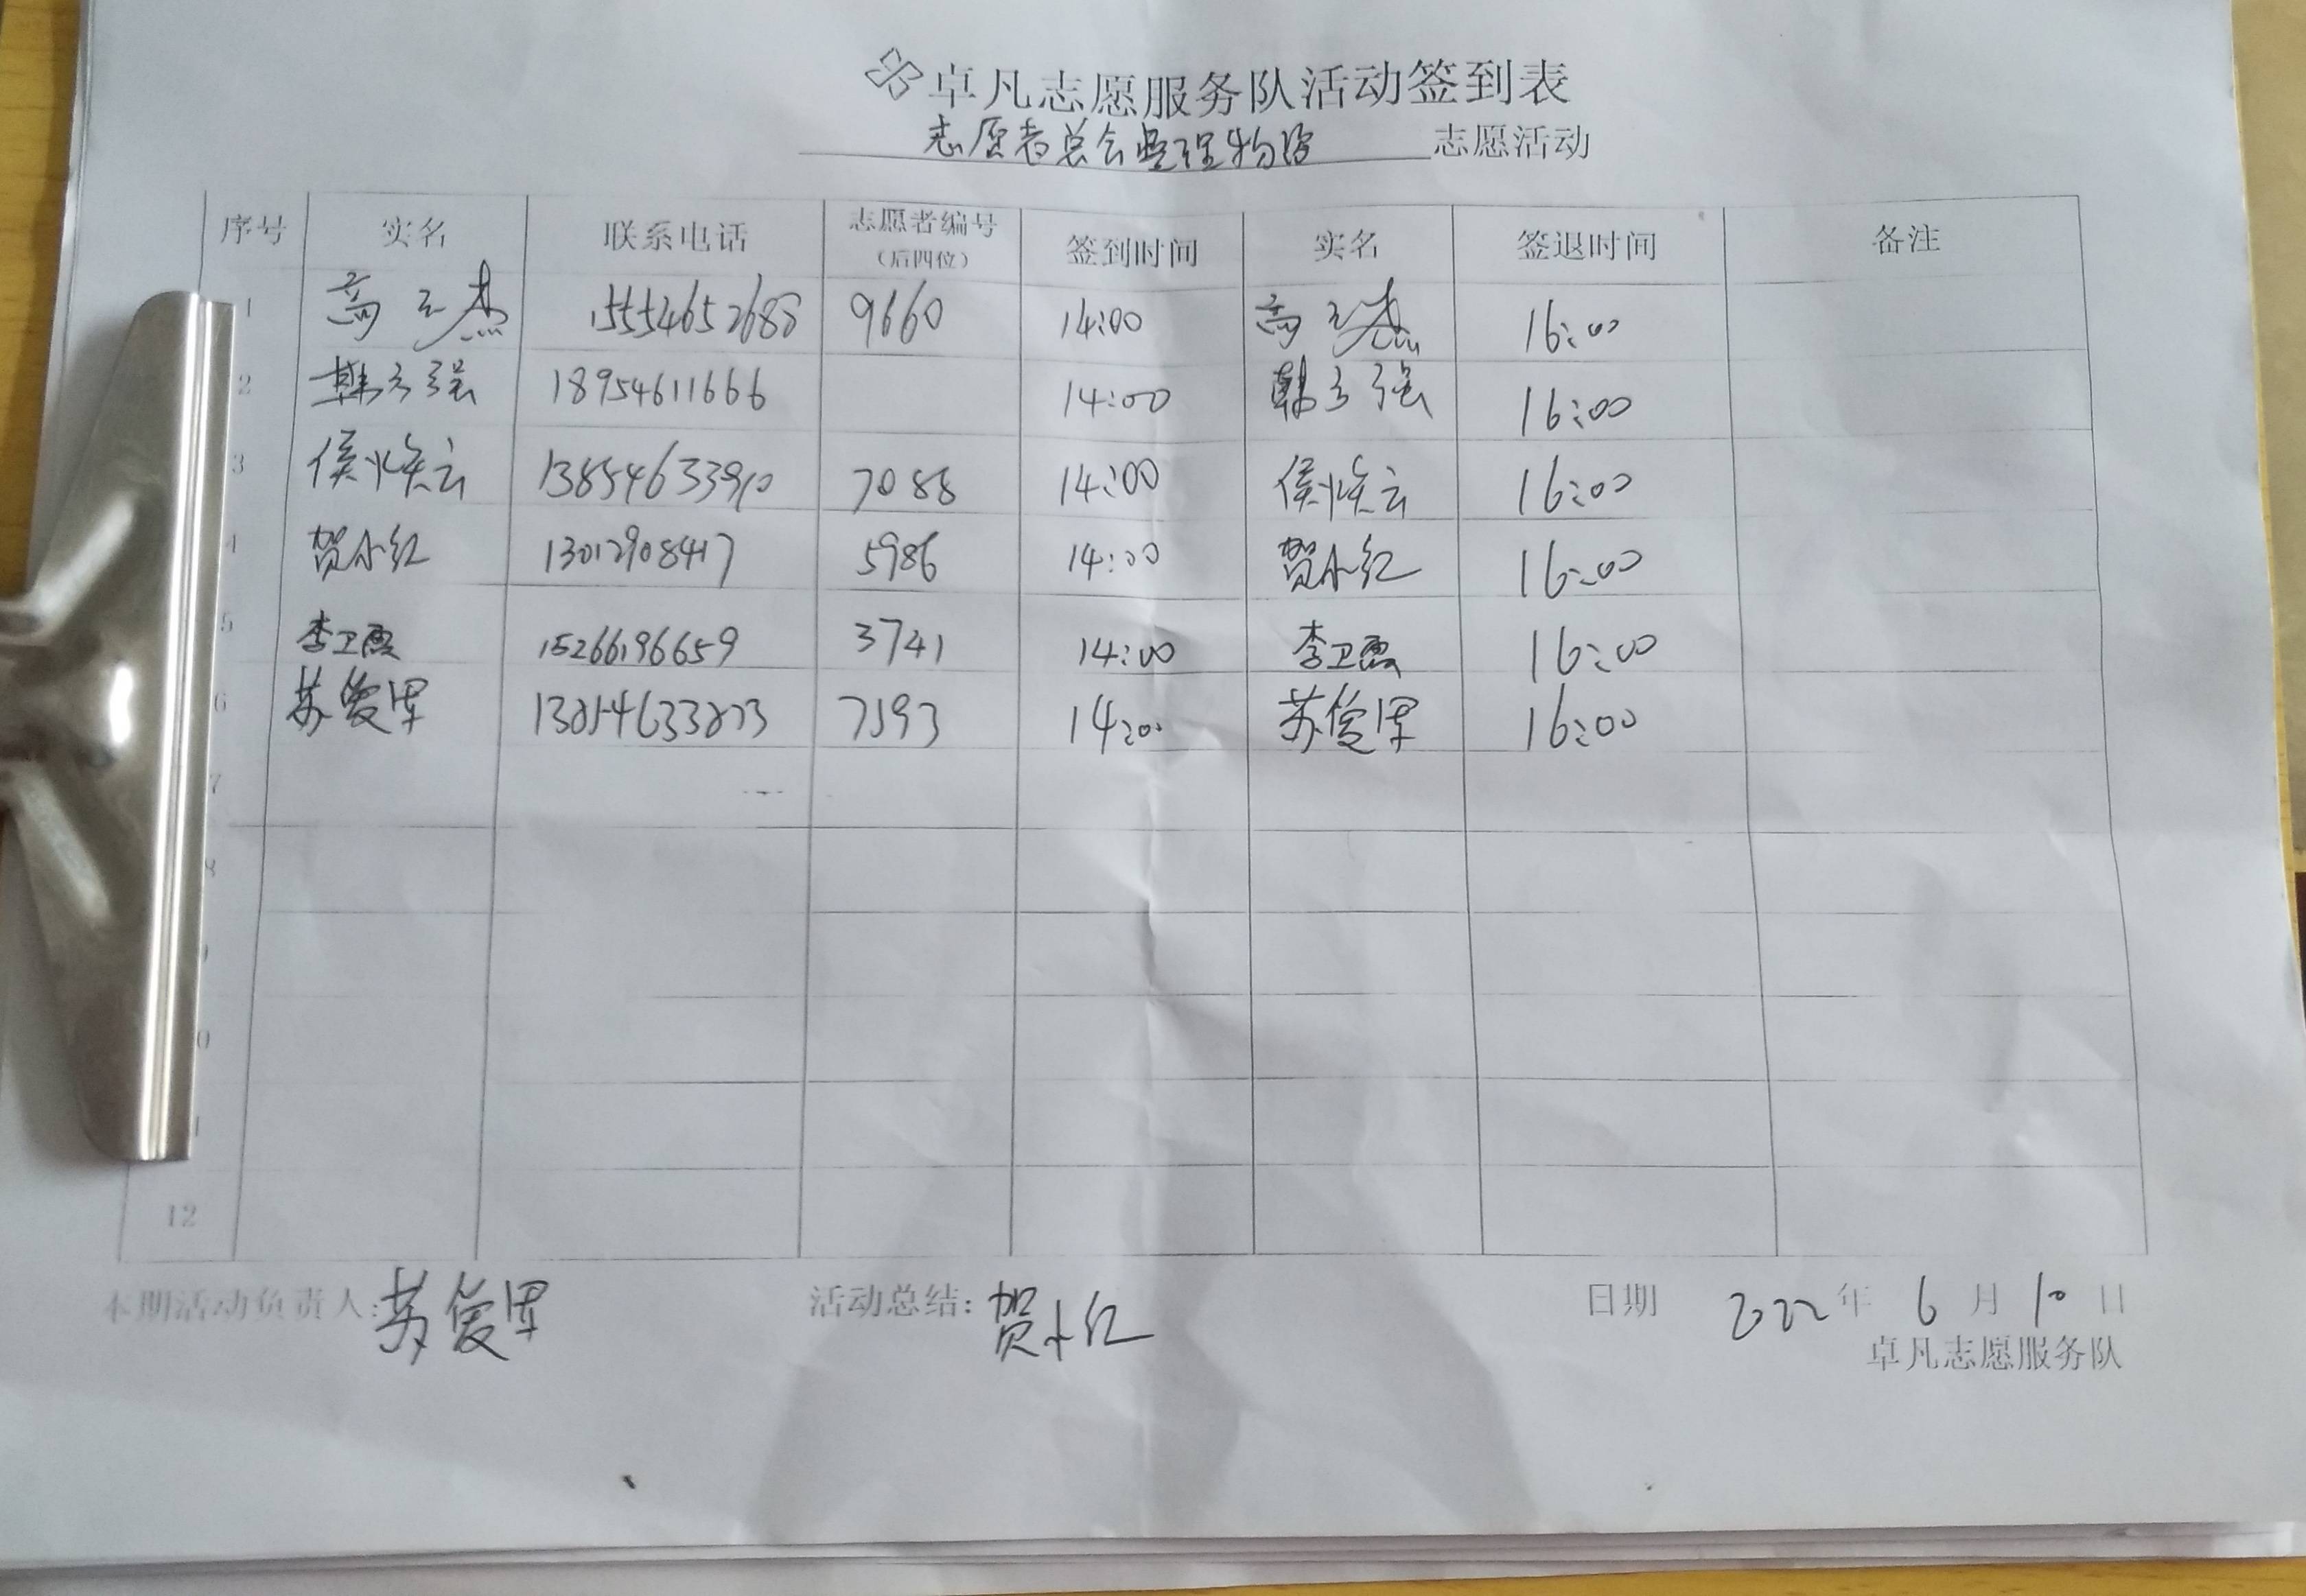 卓凡志愿服务队活动签到表
志愿者总会整理物资 志愿活动
序号 实名 联系电话 志愿者编号（后四位） 签到时间 实名 签退时间 备注
1 高 杰 15554652688 9660 14:00 高 杰 16:00
2 韩 强 18954611666 14:00 韩 强 16:00
3 侯焕云 13854633910 7088 14:00 侯焕云 16:00
4 贺小红 13012908417 5986 14:00 贺小红 16:00
5 李卫霞 15266196659 3741 14:00 李卫霞 16:00
6 苏俊军 13854633873 7593 14:00 苏俊军 16:00
7
8
12
本期活动负责人：苏俊军 活动总结：贺小红 日期 2022年 6月 10日
卓凡志愿服务队